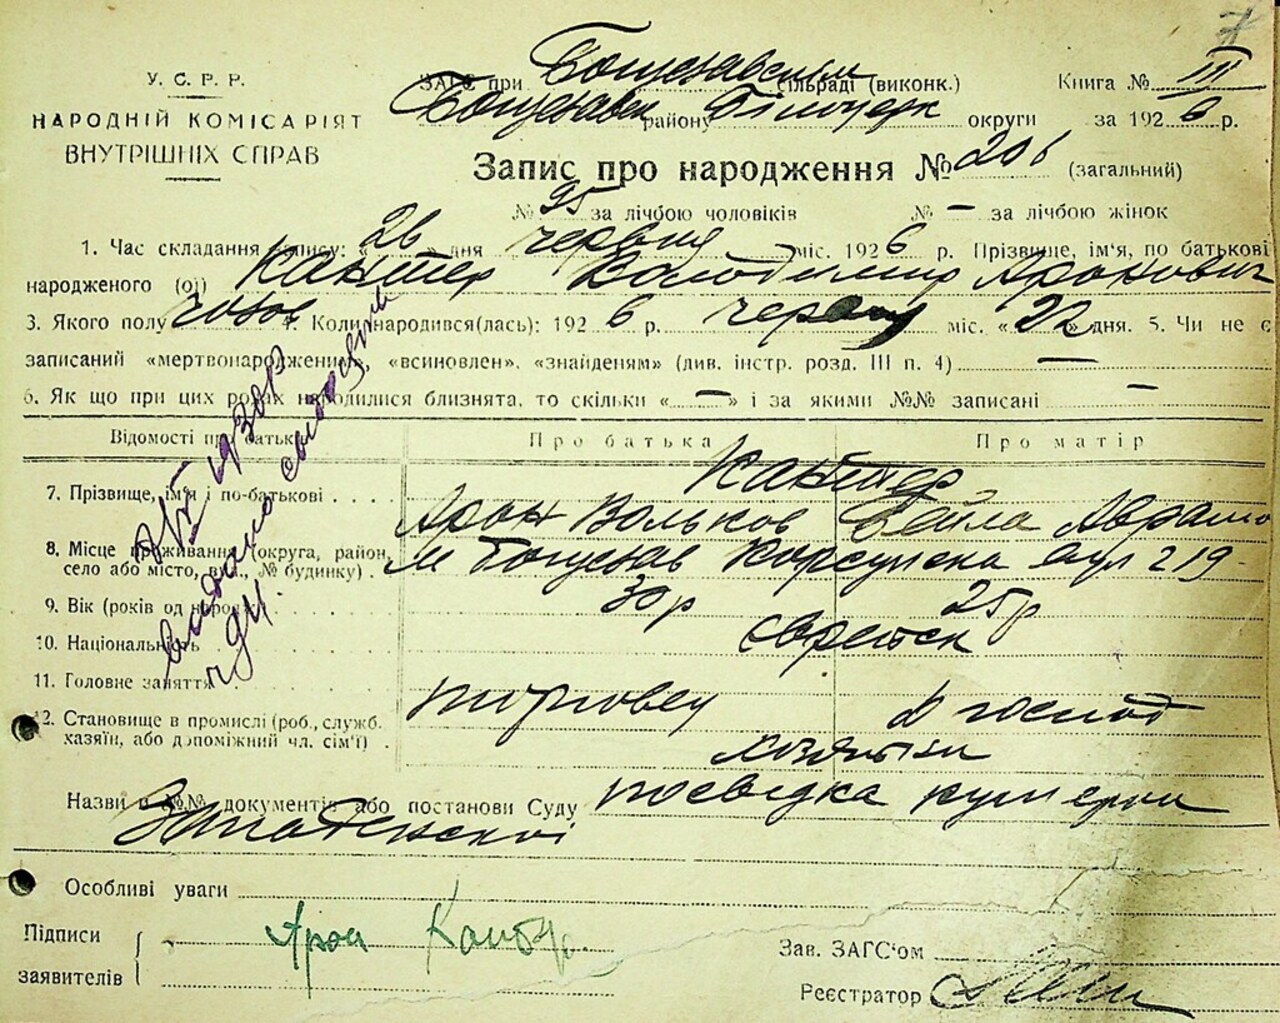 У.С.Р.Р.
НАРОДНІЙ КОМІСАРІЯТ
ВНУТРІШНІХ СПРАВ
ЗАГС при Богуславськім сільраді (виконк.)
Книга № III
Богуславськ району Білоцерк округи за 1926 р.
Запис про народження № 206 (загальний)
№ 95 за лічбою чоловіків № — за лічбою жінок
1. Час складання запису: „26" дня червня міс. 1926 р. Прізвище, ім'я, по батькові
народженого (ої) Кантер Володимир Аронович
3. Якого полу чолов 4. Коли народився(лась): 1926 р. червня міс. «22» дня. 5. Чи не є
записаний «мертвонародженим», «всиновлен», «знайденям» (див. інстр. розд. III п. 4) —
6. Як що при цих родах народилися близнята, то скільки « — » і за якими №№ записані —
Відомості про батьків
Про батька
Про матір
Кантер
7. Прізвище, ім'я і по-батькові
Арон Вольков Бейла Аврамо
8. Місце проживання (округа, район,
село або місто, вул., № будинку)
м Богуслав Корсунска вул 219
9. Вік (років од народж.)
30 р
25 р
10. Національність
єврейськ
11. Головне заняття
торговец
д господ
12. Становище в промислі (роб., служб.
хазяїн, або допоміжний чл. сім'ї)
хозяйки
Назви і №№ документів або постанови Суду посвідка
Особливі уваги
Підписи
заявителів
Арон Кантер
Зав. ЗАГС'ом
Реєстратор